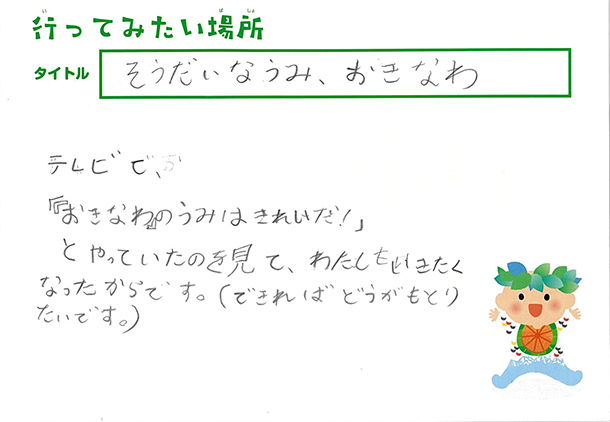 行ってみたい場所
タイトル そうだいなうみ、おきなわ
テレビで、
「『おきなわ』のうみはきれいだ!」
とやっていたのを見て、わたしもいきたく
なったからです。(できればどうがもとり
たいです。)